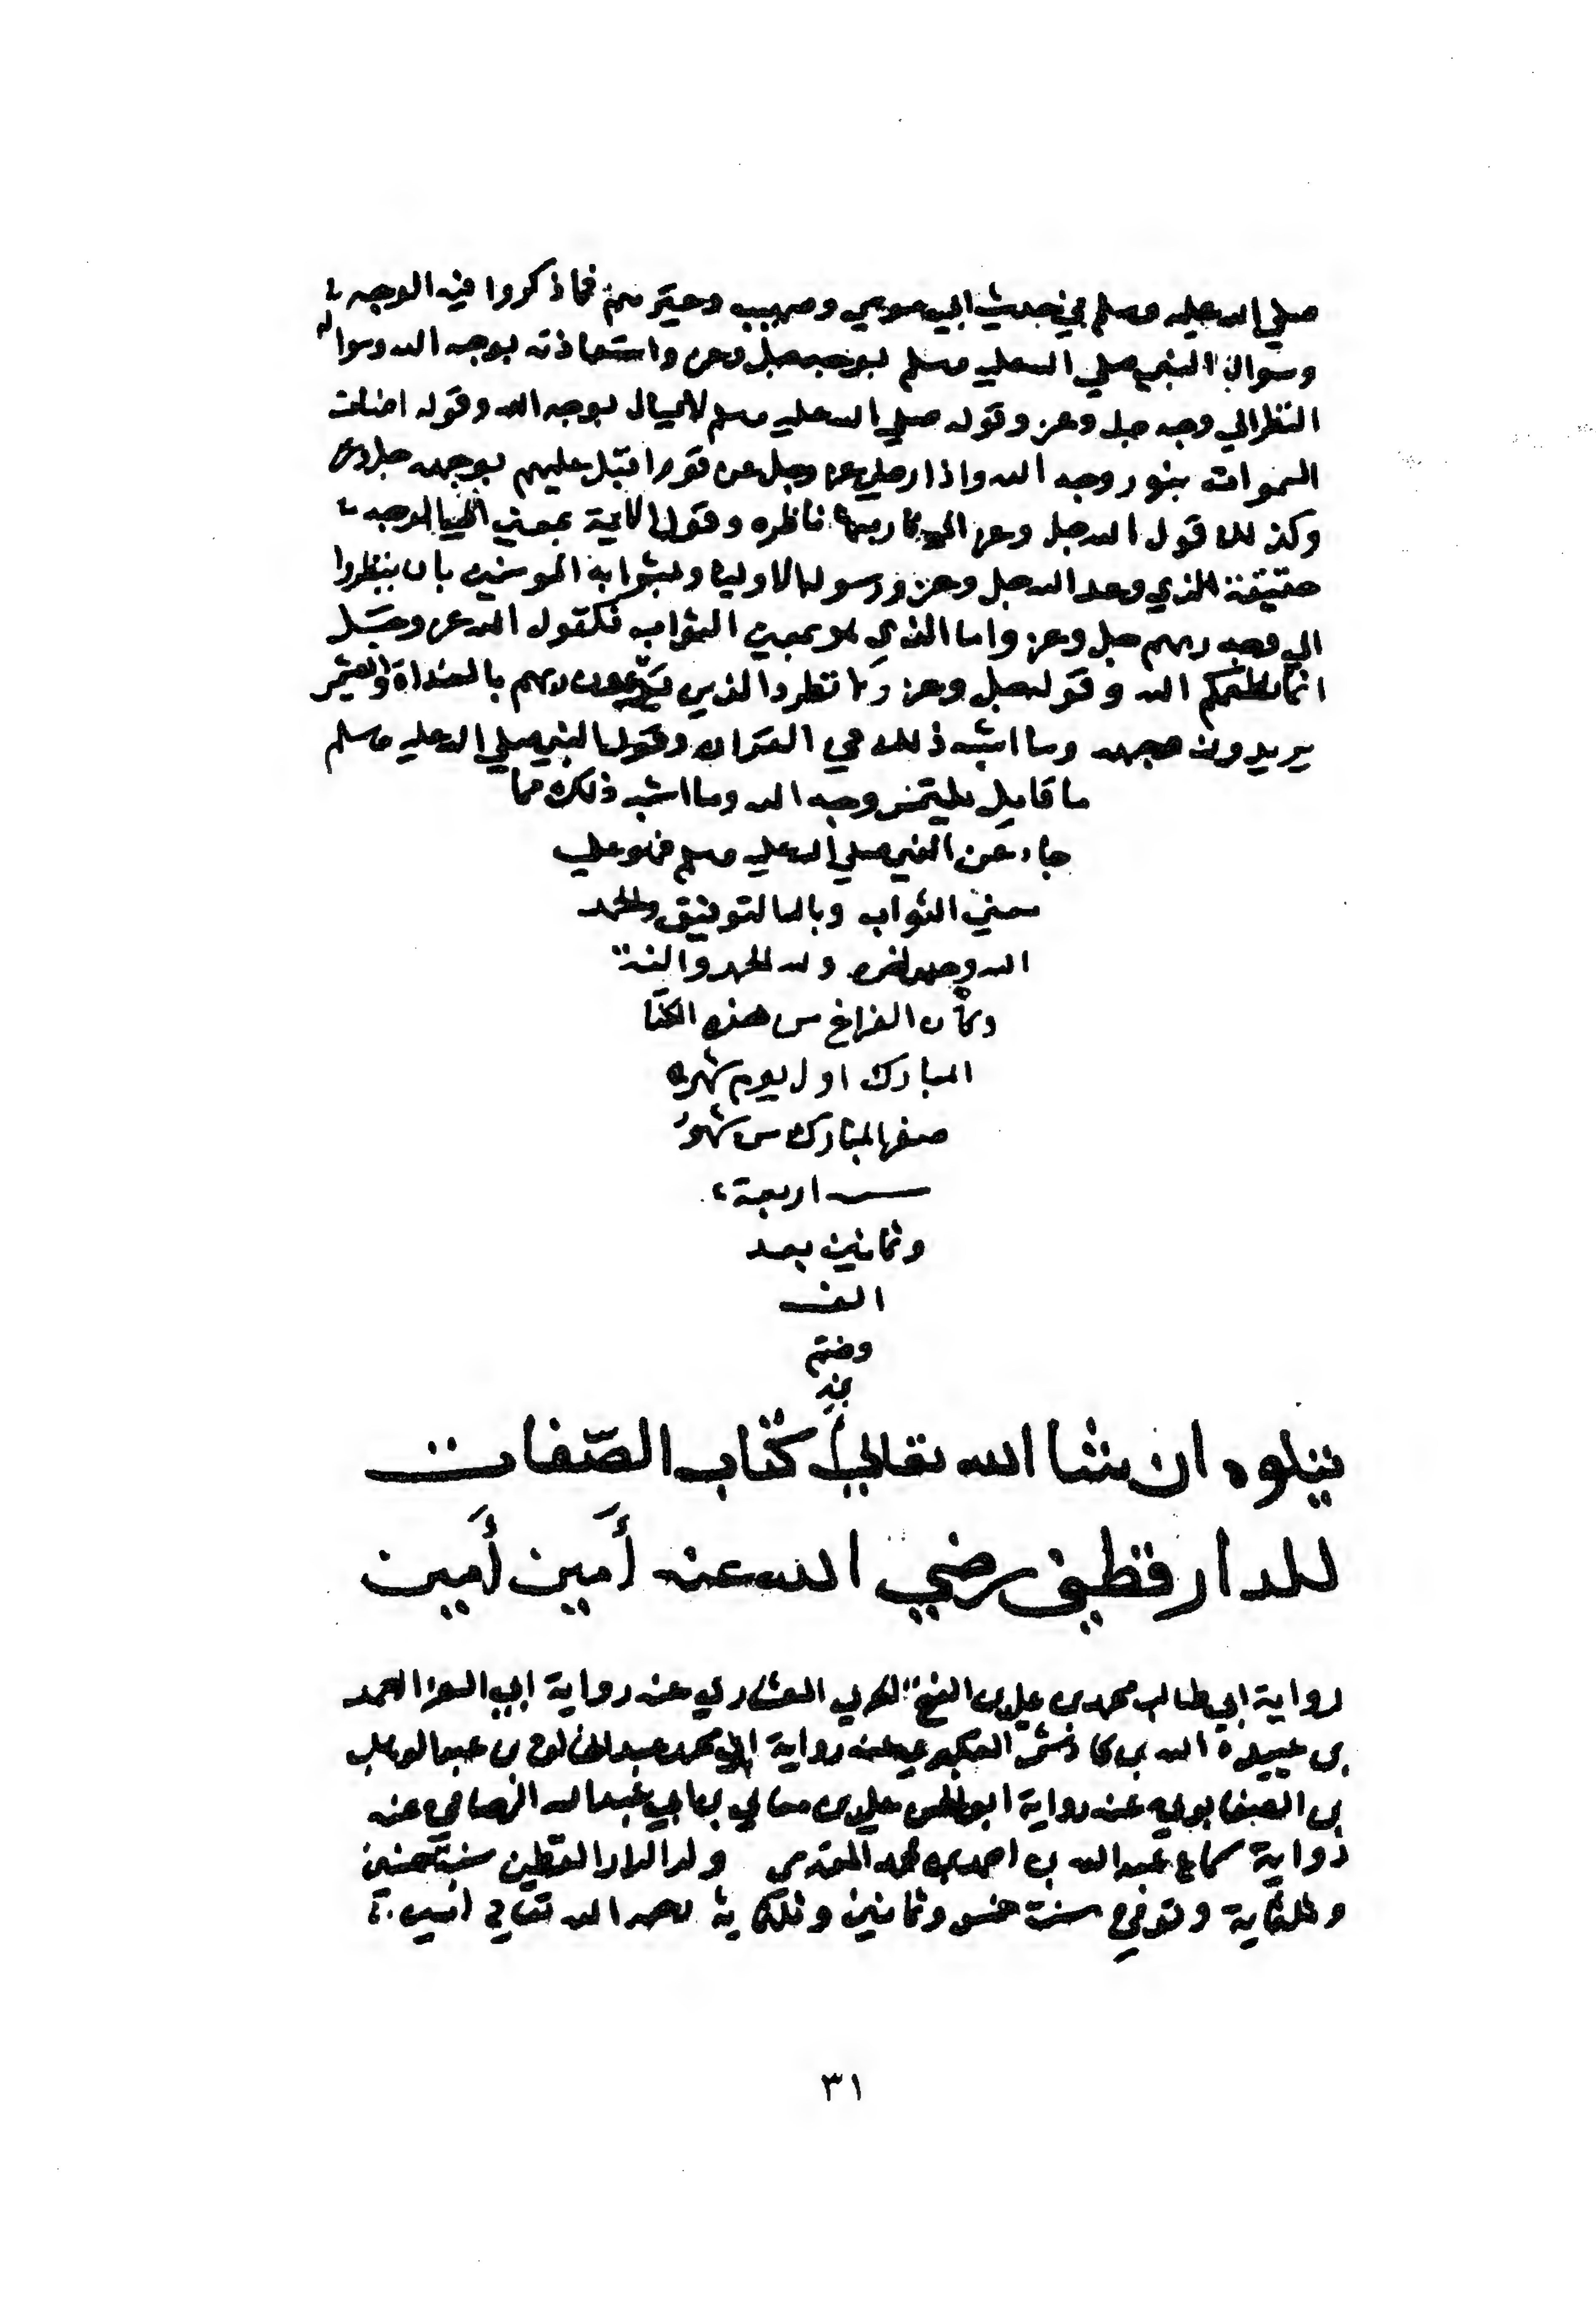 صلي الله عليه وسلم في حديث ابي موسي وصهيب وغيرهم فما ذكروا فيه الوجه
وسوال النبي صلي الله عليه وسلم بوجهه جل وعز واستعاذته بوجه الله وسواله
النظر الي وجهه جل وعز وقوله صلي الله عليه وسلم لا يسال بوجه الله وقوله اضات
السموات بنور وجه الله واذا رضي عز وجل عن قوم اقبل عليهم بوجهه جل وعز
وكذلك قول الله جل وعز الي ربها ناظره وقول الاية بمعني الوجه
حقيقة الذي وعد الله جل وعز ورسوله الاوليا وبشر به المومنين بان ينظروا
الي وجه ربهم جل وعز واما الذي هو بمعني الثواب فكقول الله عز وجل
انما نطعمكم الله وقوله جل وعز ولا تطرد الذين يدعون ربهم بالغداة والعشي
يريدون وجهه وما اشبه ذلك في القران وقول النبي صلي الله عليه وسلم
ما قايل يلتمس وجه الله وما اشبه ذلك مما
جاء عن النبي صلي الله عليه وسلم فهو علي
معني الثواب وبالله التوفيق والحمد
الله وحده وله الحمد والمنة
وكان الفراغ من هذه الكتا
المبارك اول يوم شهر
صفر المبارك من شهور
سـ اربعة
وثمانين بعد
الف
وختم
يتلوه ان شا الله تعالي كتاب الصفات
للدارقطني رضي الله عنه أمين أمين
رواية ابي طالب محمد بن علي بن الفتح الحربي العشاري عنه رواية ابي العز احمد
بن عبيد الله بن كادش العكبري عنه رواية ابي محمد عبد الخالق بن عبد الوهاب
بن الصابوني عنه رواية ابو الحسن علي بن معالي بن ابي عبد الله الرصافي عنه
رواية سماع عبد الله بن احمد بن محمد المقدسي ولد الدار القطني سنة خمسين
وثلثماية وتوفي سنة خمس وثمانين وثلثماية رحمه الله تعالي امين
٣١